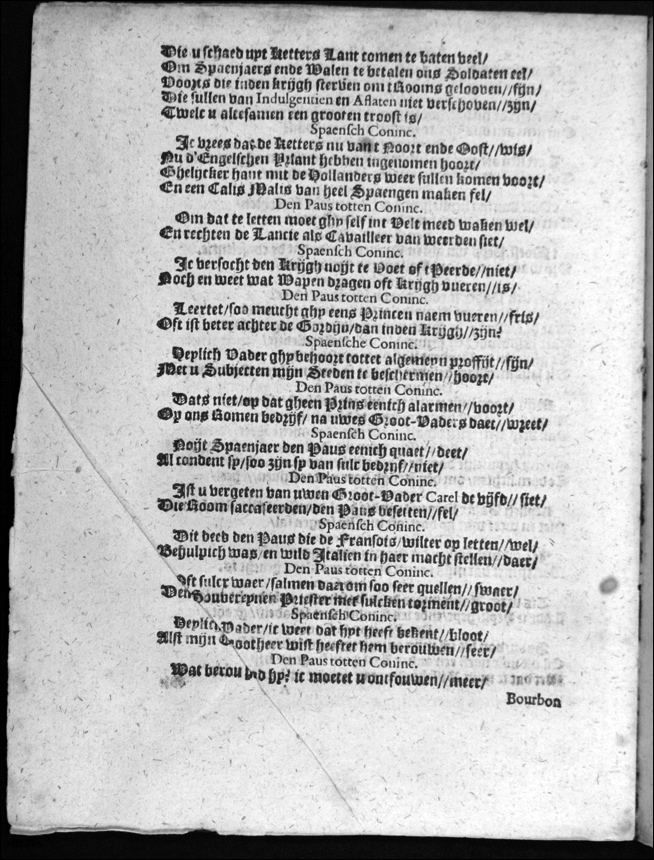 Die u schaed uyt Ketters Lant comen te baten veel/
Om Spaenjaers ende Walen te betalen ons Soldaten eel/
Voorts die inden krijgh sterven om t'Rooms gelooven//fijn/
Die sullen van Indulgentien en Aflaten niet verschoven//zijn/
Twelc u altesamen een grooten troost is/
Spaensch Coninc.
Ic vrees dat de Ketters nu van t Noort ende Oost//wis/
Nu d'Engelschen Yrlant hebben ingenomen hoort/
Ghelijcker hant mit de Hollanders weer sullen komen voort/
En een Calis Malis van heel Spaengen maken fel/
Den Paus totten Coninc.
Om dat te letten moet ghy self int Velt meed waken wel/
En rechten de Lancie als Cavailleer van weerden siet/
Spaensch Coninc.
Ic versocht den Krijgh noijt te Voet of t Peerde//niet/
Noch en weet wat Wapen dragen oft Krijgh vueren//is/
Den Paus totten Coninc.
Leertet/soo meucht ghy eens Princen naem vueren//fris/
Oft ist beter achter de Gordijn/dan inden Krijgh//zijn?
Spaensche Coninc.
Heylich Vader ghy behoort tottet algemeyn proffijt//fijn/
Met u Subjecten mijn Steeden te beschermen//hoort/
Den Paus totten Coninc.
Dats niet/op dat gheen Prins eenich alarmen//voort/
Op ons Romen bedrijf/na uwes Groot-Vaders daet//wreet/
Spaensch Coninc.
Noijt Spaenjaer den Paus eenich quaet//deet/
Al condent sy/soo zijn sy van sulc bedrijf//niet/
Den Paus totten Coninc.
Ist u vergeten van uwen Groot-Vader Carel de vijfd//siet/
Die Room saccaseerden/den Paus beseten//fel/
Spaensch Coninc.
Dit deed den Paus die de Fransois/wilter op letten//wel/
Behulpich was/en wild Italien in haer macht stellen//daer/
Den Paus totten Coninc.
Ist sulcx waer/salmen daerom soo seer quellen//swaer/
Den Souvereynen Priester met sulcken torment//groot/
Spaensch Coninc.
Heylich Vader/ic weet dat hyt heeft bekent//bloot/
Alst mijn Grootheer wist heeftet hem berouwen//seer/
Den Paus totten Coninc.
Wat berou had hy? ic moetet u ontfouwen//meer/
Bourbon